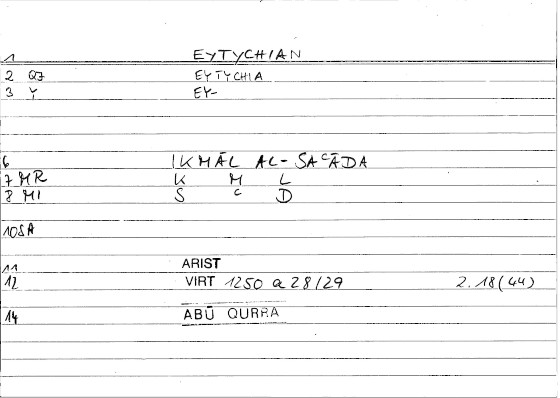 1 EYTYCHIAN
2 QJ EYTYCHIA
3 Y EY-
6 IKMĀL AL-SAᶜĀDA
7 MR K M L
8 MI S ᶜ D
10 SA
11 ARIST
12 VIRT 1250 a 28/29 2.18(44)
14 ABŪ QURRA